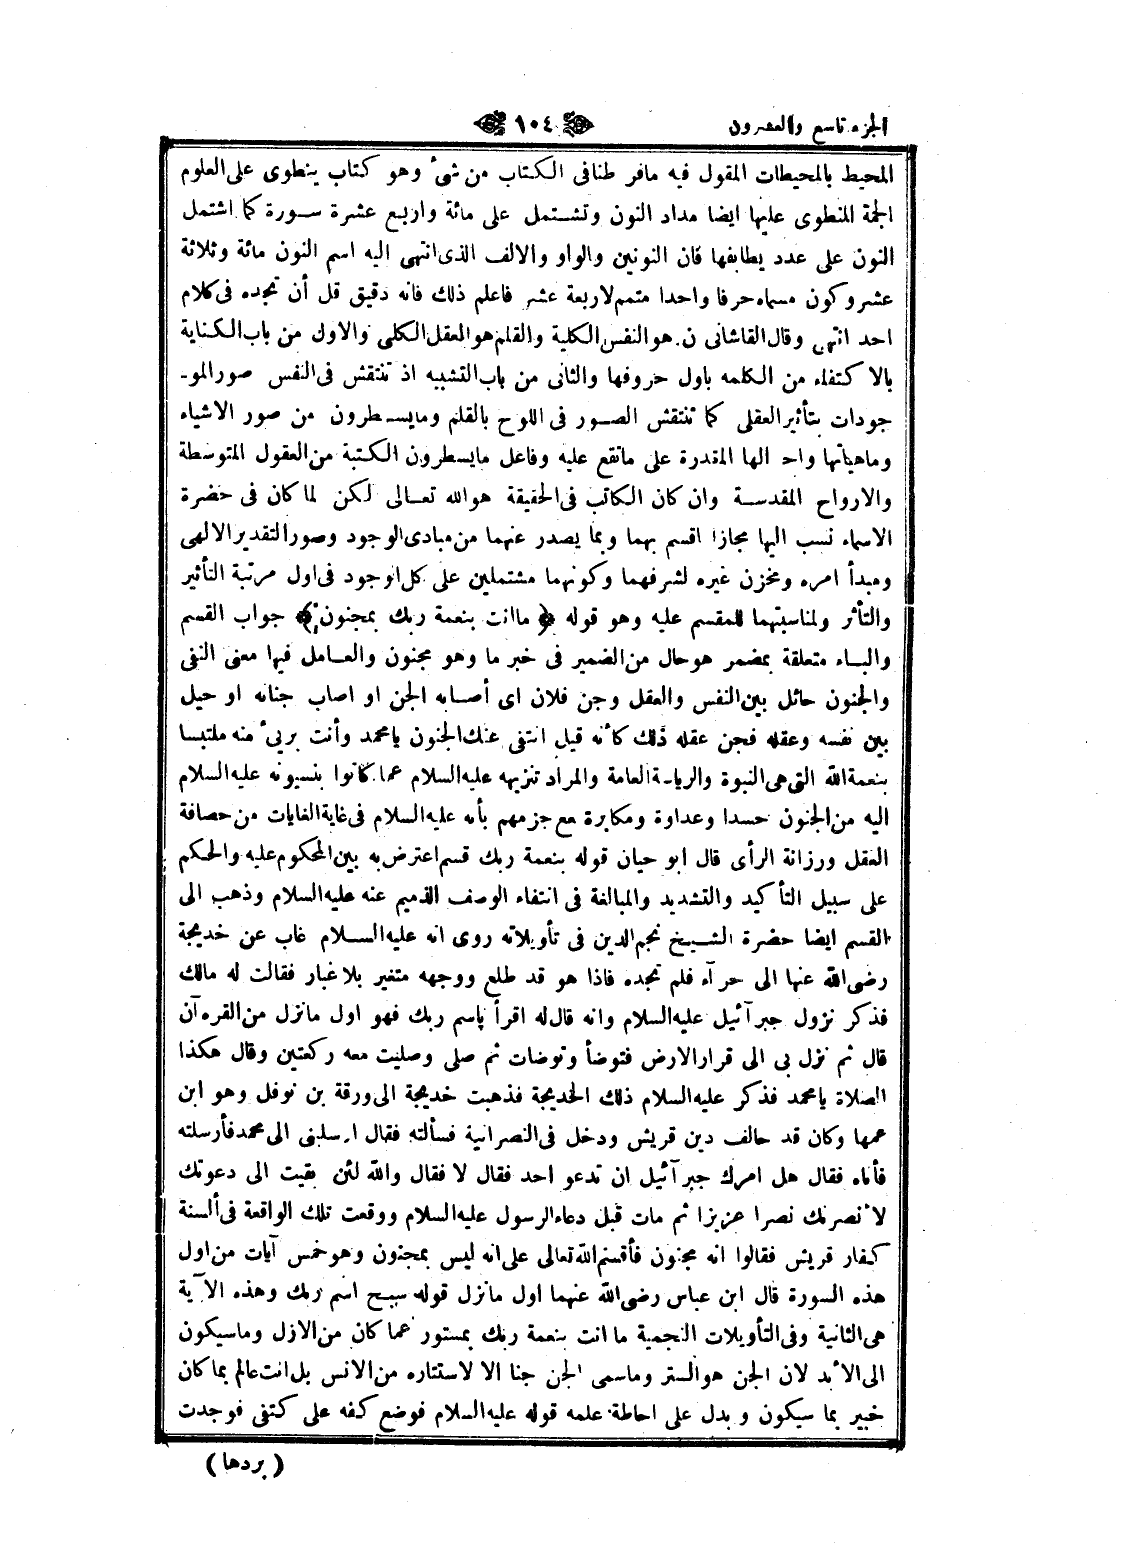 الجزء تاسع والعشرون
١٠٤
المحيط بالمحيطات المقول فيه مافر طنافى الكتاب من شئ وهو كتاب ينطوى على العلوم
الجمة المنطوى عليها ايضا مداد النون وتشتمل على مائة واربع عشرة سورة كما اشتمل
النون على عدد يطابقها فان النونين والواو والالف الذى انتهى اليه اسم النون مائة وثلاثة
عشر وكون مسماه حرفا واحدا متمم لاربعة عشر فاعلم ذلك فانه دقيق قل أن تجده فى كلام
احد انتهى وقال القاشانى ن هو النفس الكلية والقلم هو العقل الكلى والاول من باب الكناية
بالاكتفاء من الكلمه باول حروفها والثانى من باب التشبيه اذ تنتقش فى النفس صور المو۔
جودات بتأثير العقلى كما تنتقش الصور فى اللوح بالقلم ومايسطرون من صور الاشياء
وماهياتها واحـ الها المقدرة على ماتقع عليه وفاعل مايسطرون الكتبة من العقول المتوسطة
والارواح المقدسة وان كان الكاتب فى الحقيقة هو الله تعالى لكن لما كان فى حضرة
الاسماء نسب اليها مجازا اقسم بهما وبما يصدر عنهما من مبادى الوجود وصور التقدير الالهى
ومبدأ امره ومخزن غيبه لشرفهما وكونهما مشتملين على كل الوجود فى اول مرتبة التأثير
والتأثر ولمناسبتهما للمقسم عليه وهو قوله ﴿ ماانت بنعمة ربك بمجنون ﴾ جواب القسم
والباء متعلقة بمضمر هو حال من الضمير فى خبر ما وهو مجنون والعامل فيها معنى النفى
والجنون حائل بين النفس والعقل وجن فلان اى أصابه الجن او اصاب جنانه او حيل
بين نفسه وعقله فجن عقله ذلك كأنه قيل انتفى عنك الجنون يامحمد وأنت بريئ منه ملتبسا
بنعمة الله التى هى النبوة والرياسة العامة والمراد تنزيهه عليه السلام عما كانوا ينسبونه عليه السلام
اليه من الجنون حسدا وعداوة ومكابرة مع جزمهم بأنه عليه السلام فى غاية الغايات من حصافة
العقل ورزانة الرأى قال ابو حيان قوله بنعمة ربك قسم اعترض به بين المحكوم عليه والحكم
على سبيل التأكيد والتشديد والمبالغة فى انتفاء الوصف الذميم عنه عليه السلام وذهب الى
القسم ايضا حضرة الشيخ نجم الدين فى تأويلاته روى انه عليه السلام غاب عن خديجة
رضى الله عنها الى حرآء فلم تجده فاذا هو قد طلع ووجهه متغير بلا غبار فقالت له مالك
فذكر نزول جبرآئيل عليه السلام وانه قال له اقرأ باسم ربك فهو اول مانزل من القرءآن
قال ثم نزل بى الى قرار الارض فتوضأ وتوضات ثم صلى وصليت معه ركعتين وقال هكذا
الصلاة يامحمد فذكر عليه السلام ذلك الخديجة فذهبت خديجة الى ورقة بن نوفل وهو ابن
عمها وكان قد خالف دين قريش ودخل فى النصرانية فسألته فقال ارسلينى الى محمد فأرسلته
فأتاه فقال هل امرك جبرآئيل ان تدعو احد فقال لا فقال والله لئن بقيت الى دعوتك
لأنصرنك نصرا عزيزا ثم مات قبل دعاء الرسول عليه السلام ووقعت تلك الواقعة فى ألسنة
كفار قريش فقالوا انه مجنون فأقسم الله تعالى على انه ليس بمجنون وهو خمس آيات من اول
هذه السورة قال ابن عباس رضى الله عنهما اول مانزل قوله سبح اسم ربك وهذه الآية
هى الثانية وفى التأويلات النجمية ما انت بنعمة ربك بمستور عما كان من الازل وماسيكون
الى الأبد لان الجن هو الستر وماسمى الجن جنا الا لاستتاره من الانس بل انت عالم بما كان
خبير بما سيكون ويدل على احاطة علمه قوله عليه السلام فوضع كفه على كتفى فوجدت
( بردها )